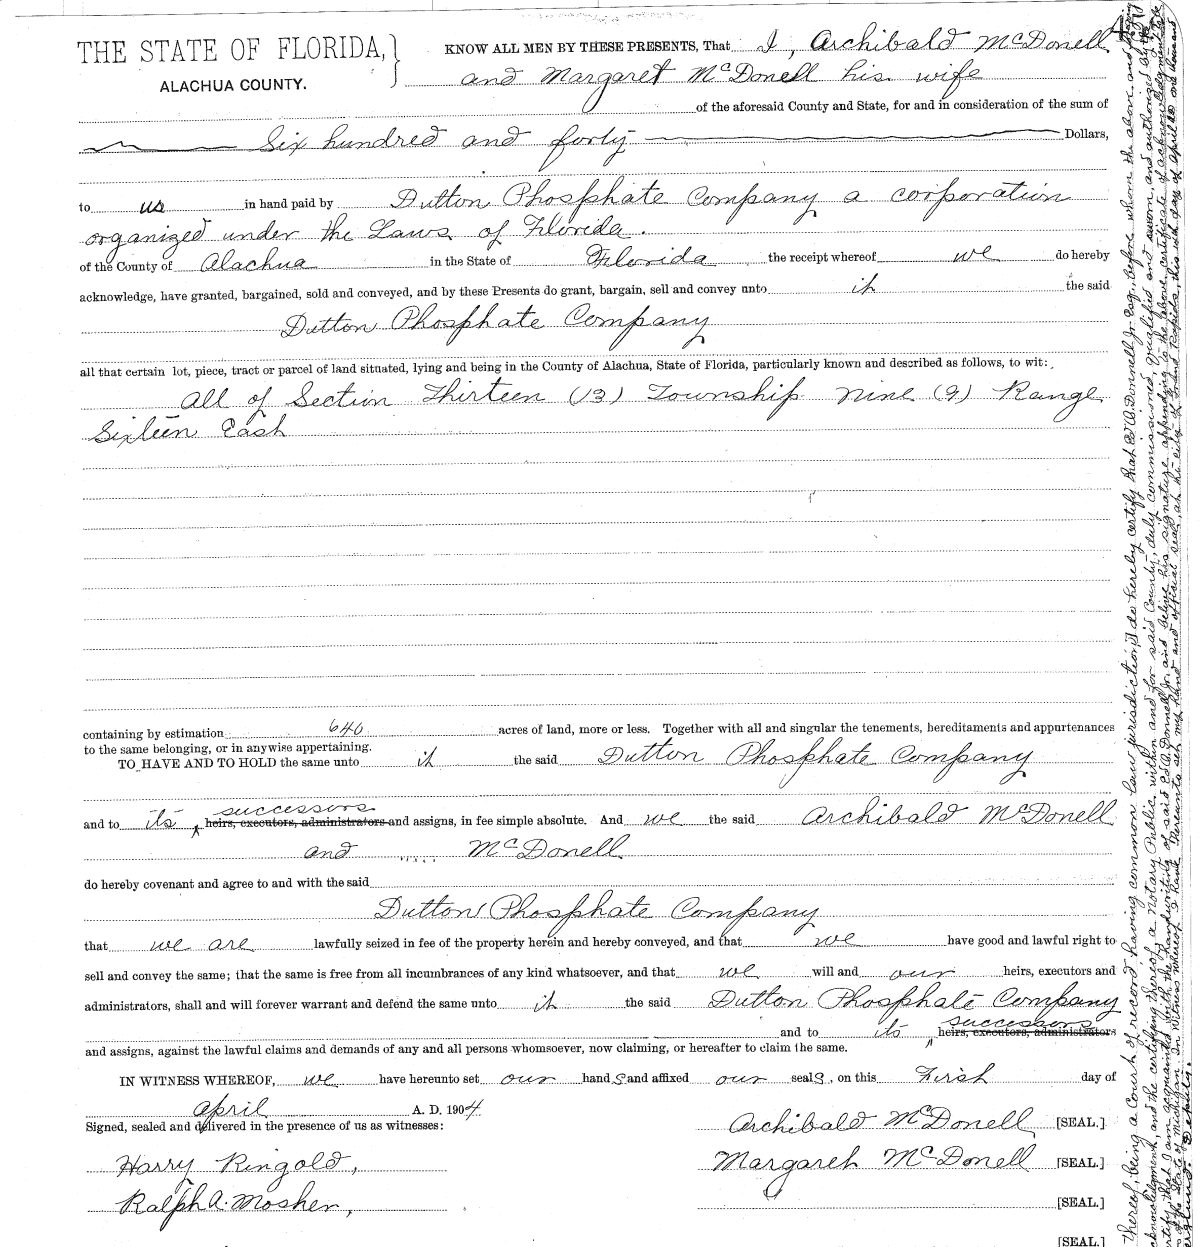 THE STATE OF FLORIDA,
ALACHUA COUNTY.
KNOW ALL MEN BY THESE PRESENTS, That I, Archibald McDonell
and Margaret McDonell his wife
of the aforesaid County and State, for and in consideration of the sum of
Six hundred and forty Dollars,
to us in hand paid by Dutton Phosphate Company a corporation
organized under the Laws of Florida.
of the County of Alachua in the State of Florida the receipt whereof we do hereby
acknowledge, have granted, bargained, sold and conveyed, and by these Presents do grant, bargain, sell and convey unto it the said
Dutton Phosphate Company
all that certain lot, piece, tract or parcel of land situated, lying and being in the County of Alachua, State of Florida, particularly known and described as follows, to wit:
All of Section Thirteen (13) Township Nine (9) Range
Sixteen East
containing by estimation 640 acres of land, more or less. Together with all and singular the tenements, hereditaments and appurtenances
to the same belonging, or in anywise appertaining.
TO HAVE AND TO HOLD the same unto it the said Dutton Phosphate Company
successors
and to its heirs, executors, administrators and assigns, in fee simple absolute. And we the said Archibald McDonell
and McDonell
do hereby covenant and agree to and with the said
Dutton Phosphate Company
that we are lawfully seized in fee of the property herein and hereby conveyed, and that we have good and lawful right to
sell and convey the same; that the same is free from all incumbrances of any kind whatsoever, and that we will and our heirs, executors and
administrators, shall and will forever warrant and defend the same unto it the said Dutton Phosphate Company
successors
and to its heirs, executors, administrators
and assigns, against the lawful claims and demands of any and all persons whomsoever, now claiming, or hereafter to claim the same.
IN WITNESS WHEREOF, we have hereunto set our hands and affixed our seals, on this First day of
April A. D. 1904
Signed, sealed and delivered in the presence of us as witnesses:
Archibald McDonell [SEAL.]
Harry Ringold,
Margaret McDonell [SEAL.]
Ralph A. Mosher,
[SEAL.]
[SEAL.]
thereof, being a Court of record having common law jurisdiction, do hereby certify that Ed A. Donnell Jr. Esq., before whom the above and
acknowledgment, and the certifying thereof, a Notary Public, within and for said County, duly commissioned, qualified and sworn, and authorized
that I am acquainted with the handwriting of said Ed A. Donnell Jr. and believe his signature appending to the above certificate of acknowledgment
State of Michigan. In Witness whereof I have hereunto set my hand and official seal, at the city of Grand Rapids, this 20 day of April
Deputy.